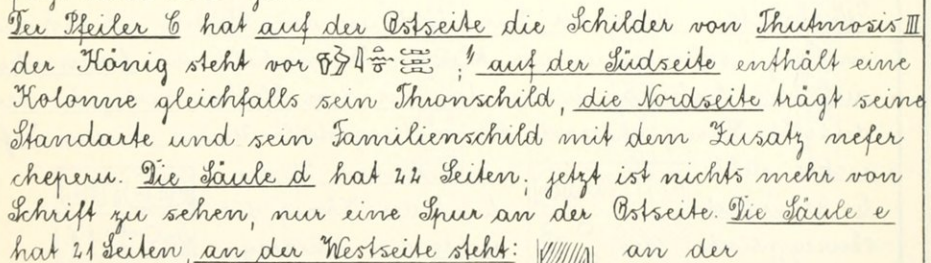 Der Pfeiler C hat auf der Ostseite die Schilder von Thutmosis III
der König steht vor ; auf der Südseite enthält eine
Kolonne gleichfalls sein Thronschild, die Nordseite trägt seine
Standarte und sein Familienschild mit dem Zusatz nefer
cheperu. Die Säule d hat 22 Seiten; jetzt ist nichts mehr von
Schrift zu sehen, nur eine Spur an der Ostseite. Die Säule e
hat 21 Seiten, an der Westseite steht: an der